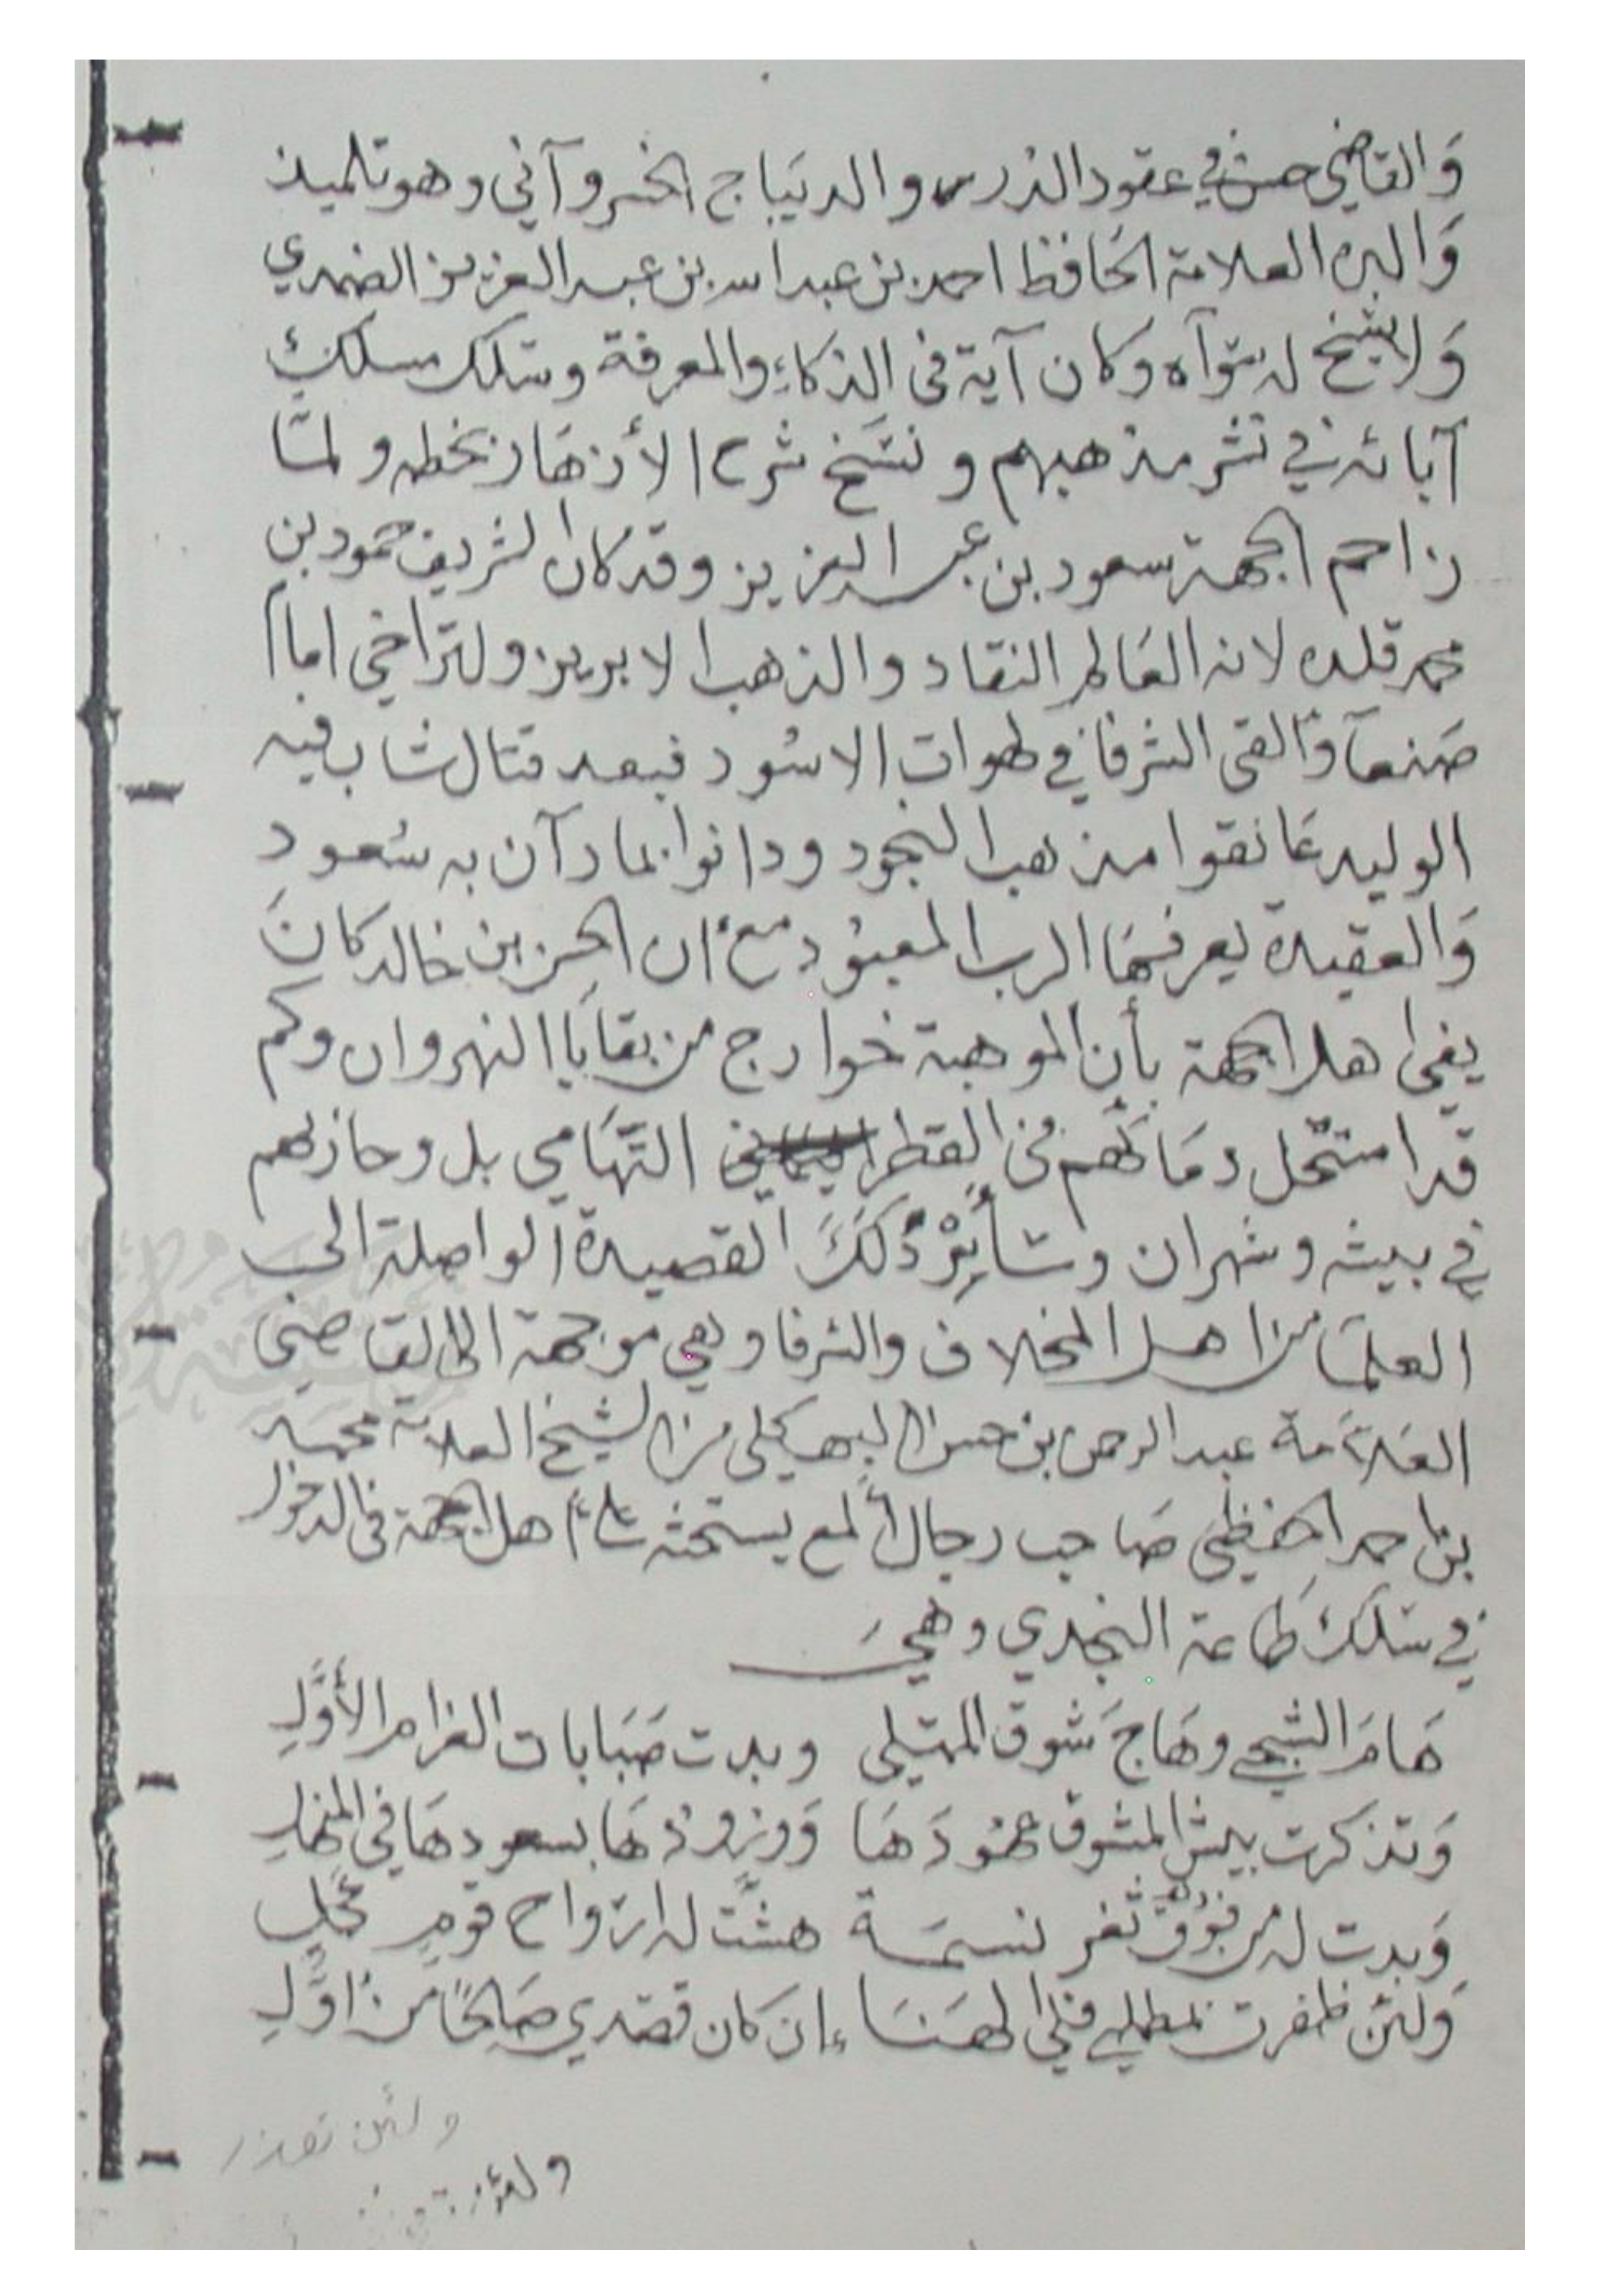 وَالقاضي حسن في عقود الدُرر والديَباج الخسروآني وهو تلميذ
وَالده العلامة الحَافظ احمد بن عبد الله بن عبد العزيز الضمدي
وَلا شيخ له سِوَآه وكان آية في الذكاءِ والمعرفة وسَلك مسلك
آبائه في نشر مذهبهم ونسَخ شرح الأزهَار بخطه ولمَّا
زاحم الجهة سعود بن عبد العزيز وقد كان الشريف حمود بن
محمد قلده لانه العَالم النقاد والذهب الابريز ولتراخي امام
صَنعآ وَألقى الشرفا في لهوات الاسُود فبعد قتال شاب فيه
الوليد عَانقوا مذهب النجود ودانوا بما دَآن به سُعود
وَالعقيدة يعرفهَا الرب المعبوُد مع أن الحسن بن خالد كانَ
يفتي اهل الجهة بأن الموهبة خوارج من بقايَا النهروان وكم
قد استحَل دمَائهم في القطر التّهَامي بل وحازبهم
في بيشه وشهران وسَأُورْدُ لَكَ القصيدة الواصلة الى
العلمَا من اهل المخلاف والشرفا وهي موجهة الى القاضي
العَلاّمَة عبد الرحمن بن حسن البهكلي من الشيخ العلامة محمد
بن احمد الحفظي صَاحب رجال ألمع يستحثه وأهل الجهة في الدخول
في سَلك طَاعة النجدي وهيَ
هَامَ الشجي وهَاجَ شَوق المبتلي وبدت صَبَابات الغرام الأوَّلِ
وَتذكرت بيش المشوق عهُودَهَا وَورُودُهَا بسعودهَا في المنهلِ
وَبدت له من فوْق ثغر نسمَة هشَّت له ارَوَاح قومٍ كُمَّلِ
وَلئن ظفرت بمطلبي فلي الهَنَا إن كان قصَدي صَالحًا من اوَّلِ
ولئن تعذر